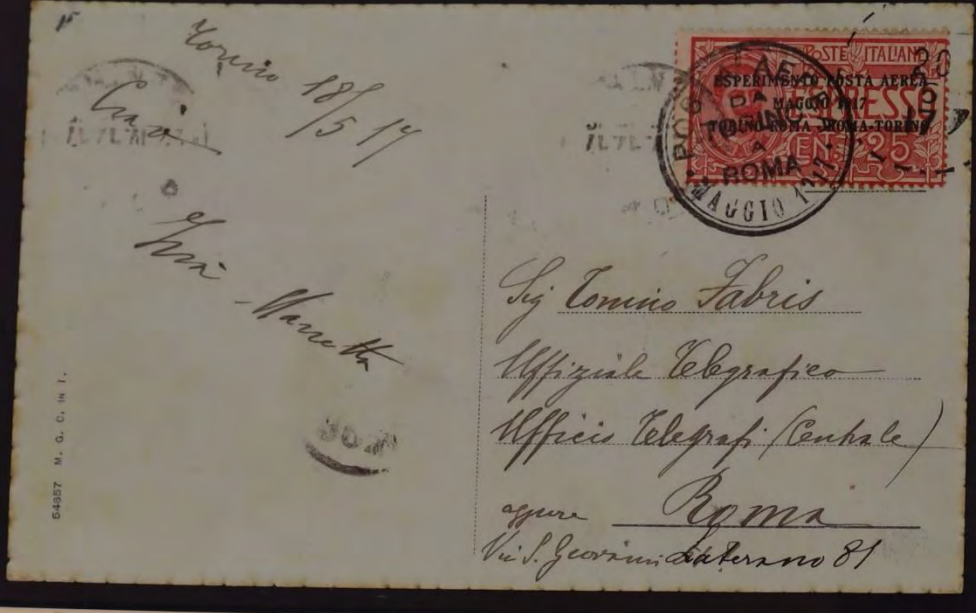 Torino 18/5 17
POSTE ITALIANE
ESPERIMENTO POSTA AEREA
MAGGIO 1917
TORINO-ROMA · ROMA-TORINO
ESPRESSO
CENT. 25
POSTA AEREA
DA
TORINO
A
ROMA
MAGGIO 1917
Sig Tonino Fabris
Uffiziale Telegrafico
Ufficio Telegrafi (Centrale)
Roma
oppure
Via S. Giovanni Laterano 81
54857 M. G. C. IN I.